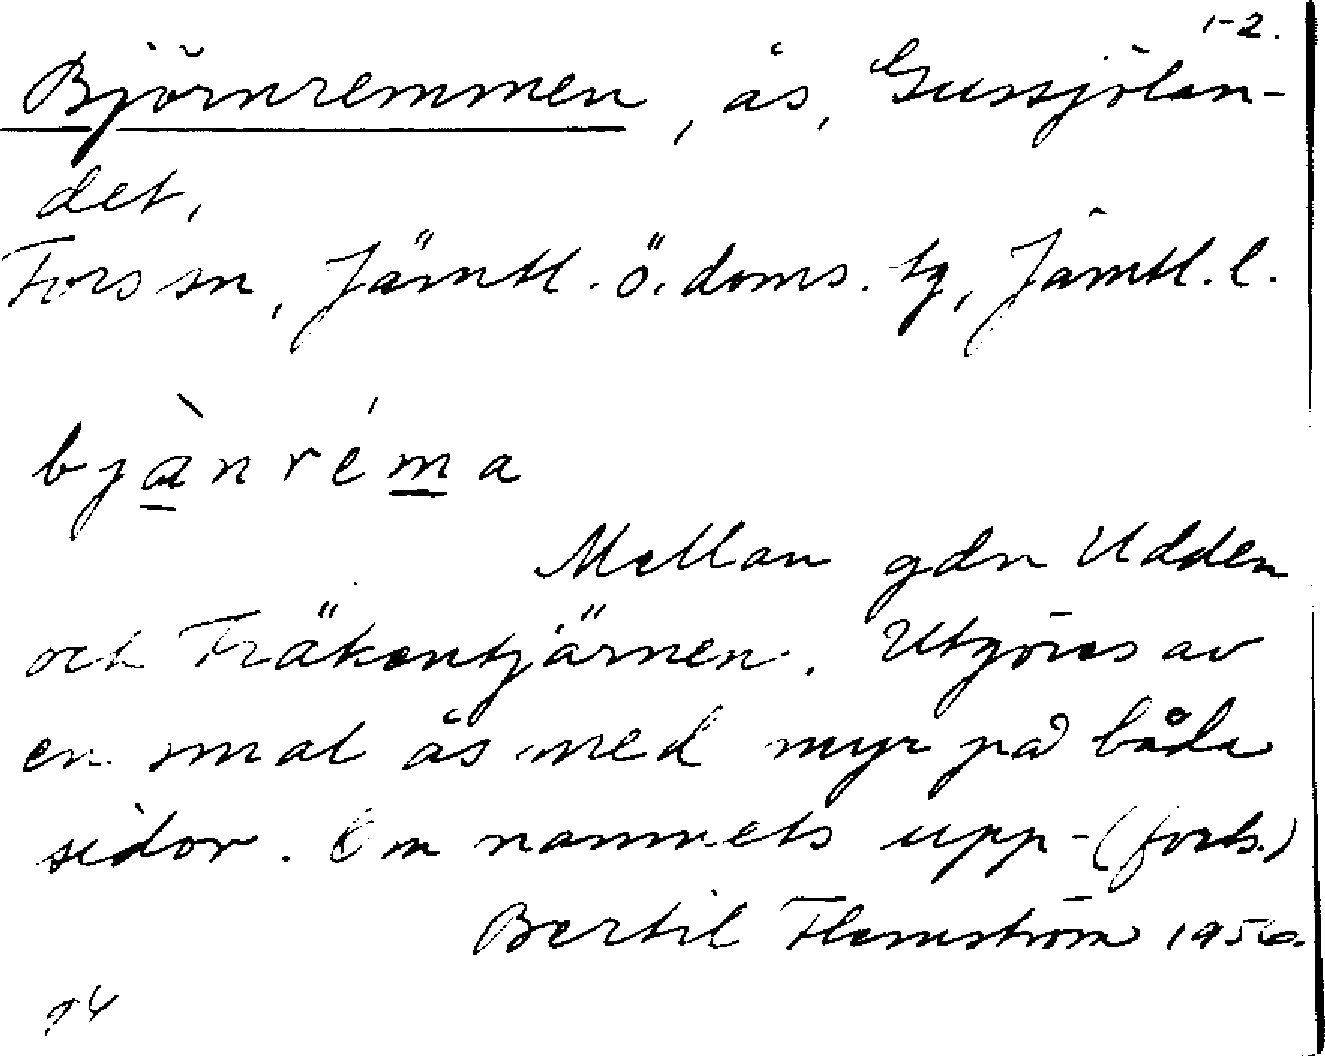 1-2.
Björnremmen, ås, Gussjölan-
det,
Fors sn, Jämtl. ö. doms. tg, Jämtl. l.
bjànréma
Mellan gdn Udden
och Fräkentjärnen. Utgöres av
en smal ås med myr på båda
sidor. Om namnets upp-(forts.)
Bertil Flemström 1956.